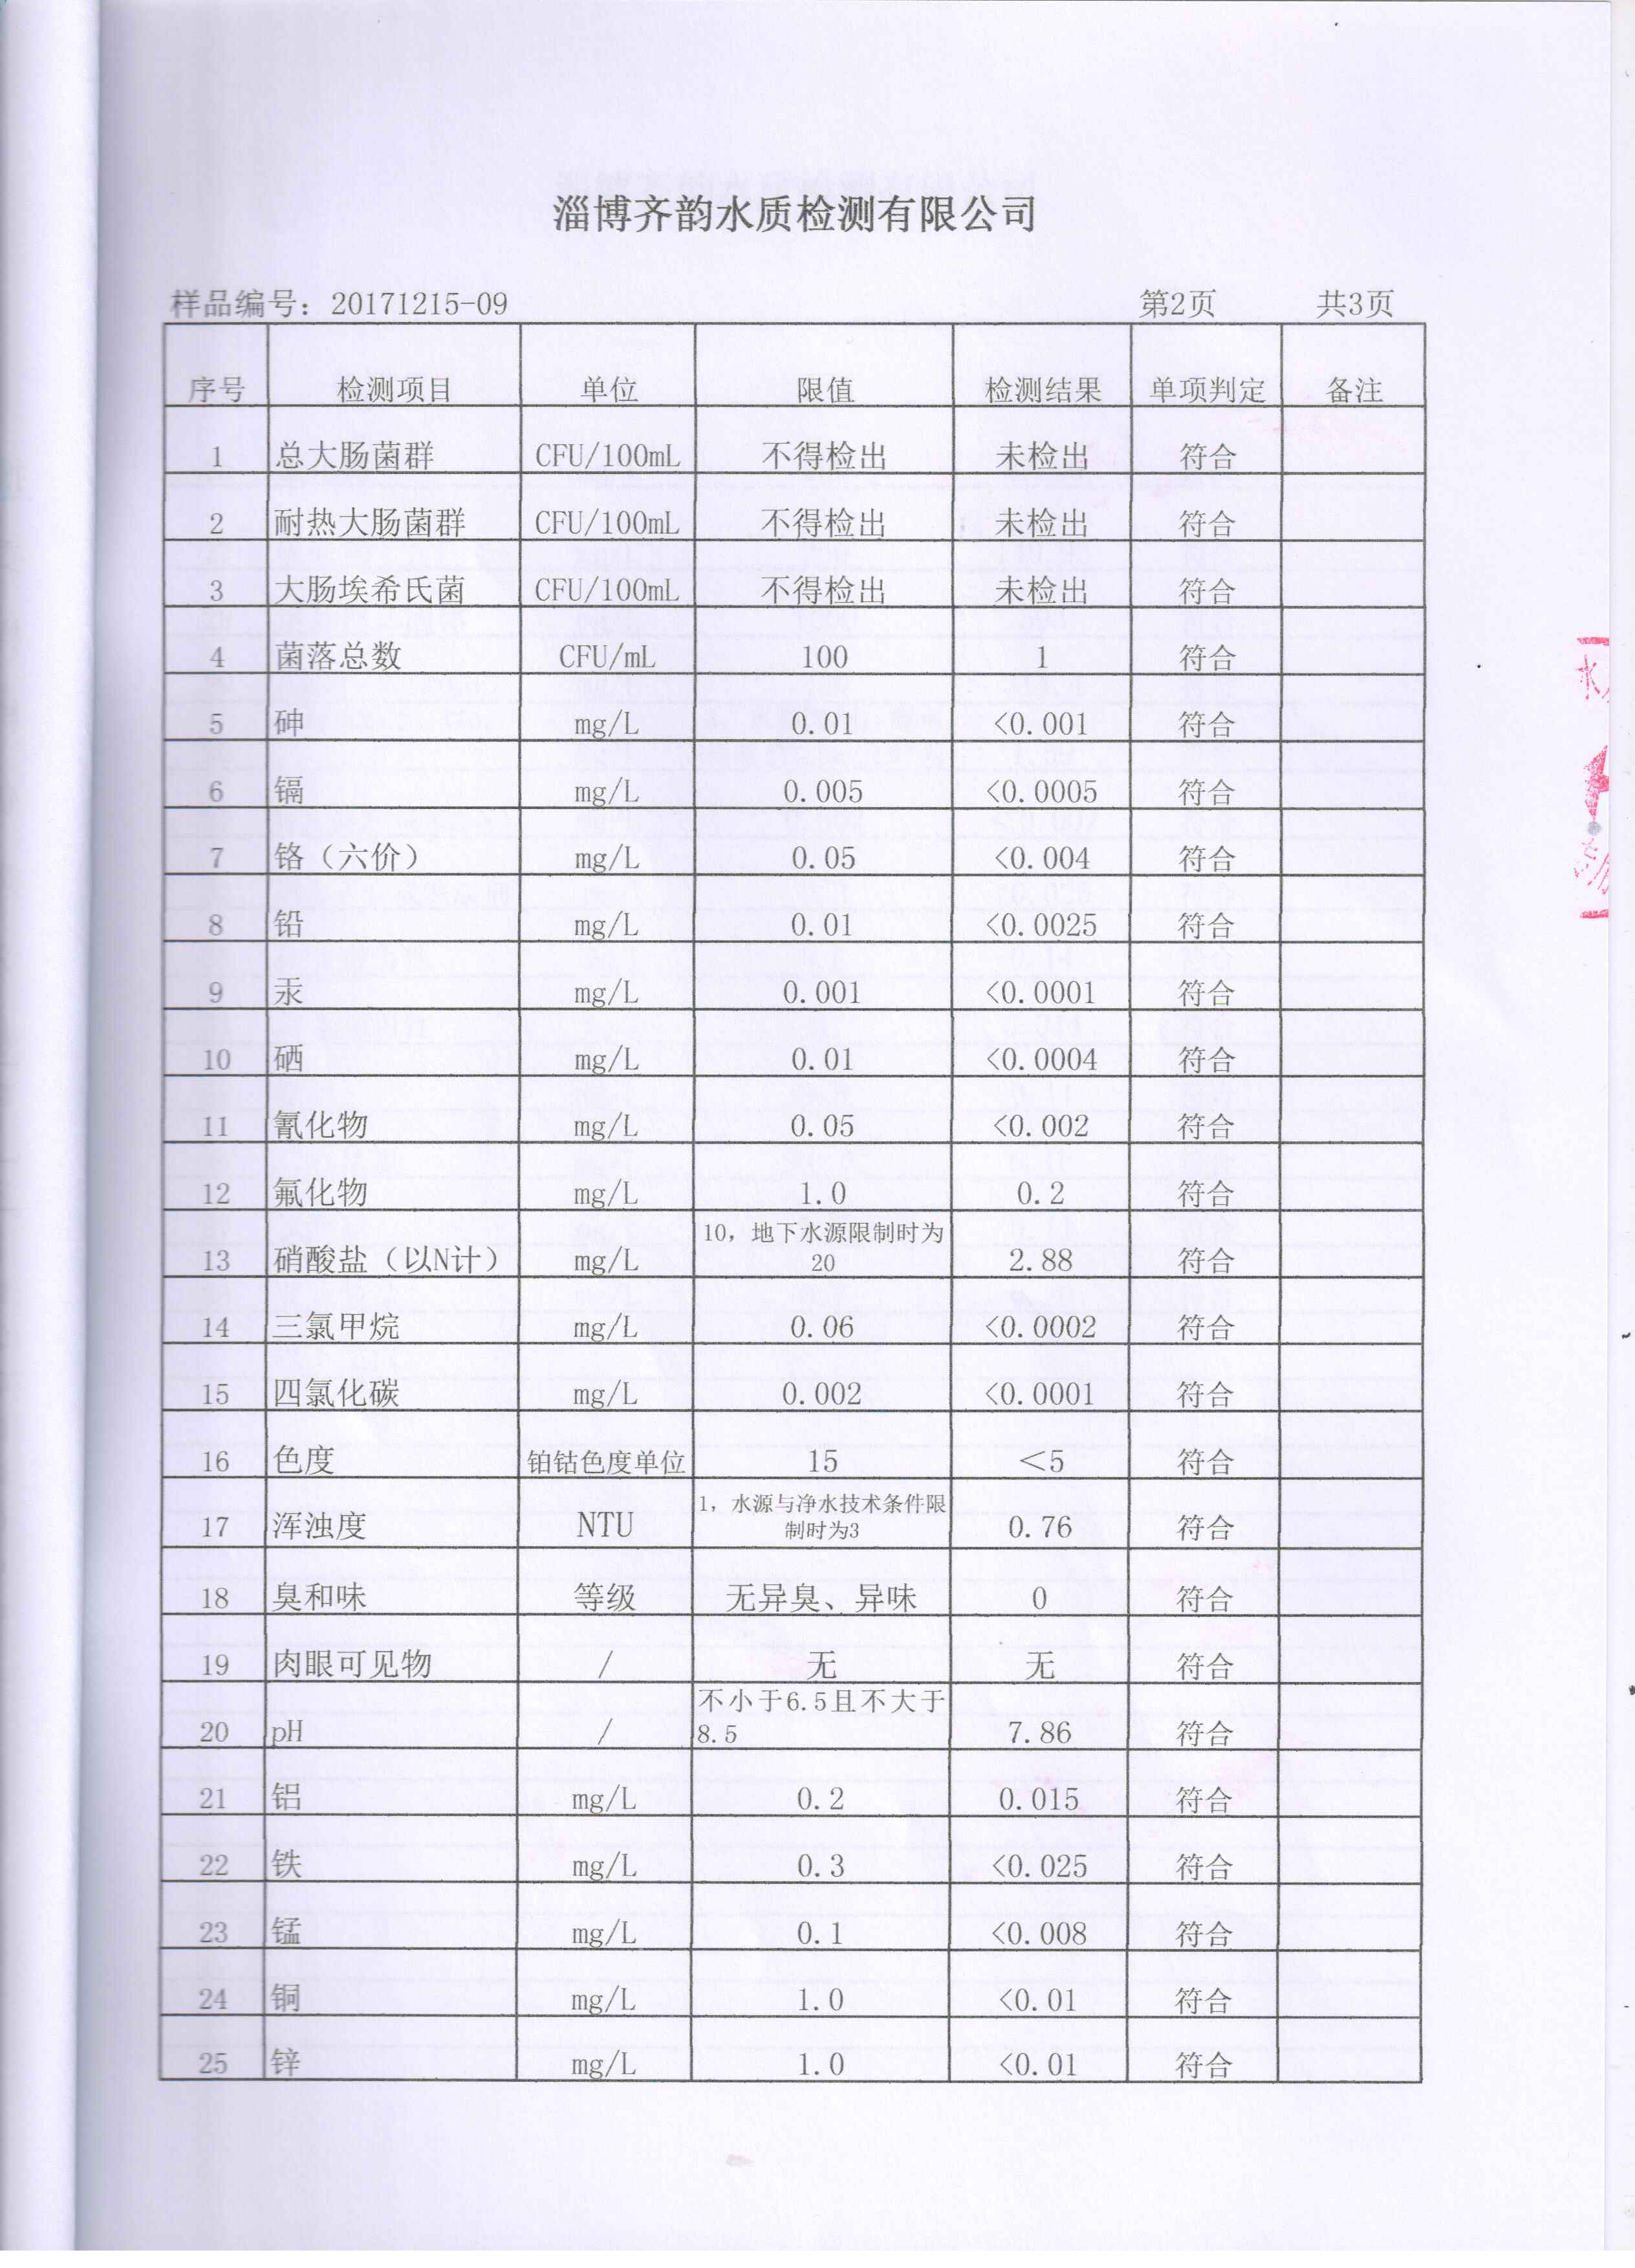 淄博齐韵水质检测有限公司
样品编号：20171215-09 第2页 共3页
序号 检测项目 单位 限值 检测结果 单项判定 备注
1 总大肠菌群 CFU/100mL 不得检出 未检出 符合
2 耐热大肠菌群 CFU/100mL 不得检出 未检出 符合
3 大肠埃希氏菌 CFU/100mL 不得检出 未检出 符合
4 菌落总数 CFU/mL 100 1 符合
5 砷 mg/L 0.01 <0.001 符合
6 镉 mg/L 0.005 <0.0005 符合
7 铬（六价） mg/L 0.05 <0.004 符合
8 铅 mg/L 0.01 <0.0025 符合
9 汞 mg/L 0.001 <0.0001 符合
10 硒 mg/L 0.01 <0.0004 符合
11 氰化物 mg/L 0.05 <0.002 符合
12 氟化物 mg/L 1.0 0.2 符合
13 硝酸盐（以N计） mg/L 10，地下水源限制时为20 2.88 符合
14 三氯甲烷 mg/L 0.06 <0.0002 符合
15 四氯化碳 mg/L 0.002 <0.0001 符合
16 色度 铂钴色度单位 15 ＜5 符合
17 浑浊度 NTU 1，水源与净水技术条件限制时为3 0.76 符合
18 臭和味 等级 无异臭、异味 0 符合
19 肉眼可见物 / 无 无 符合
20 pH / 不小于6.5且不大于8.5 7.86 符合
21 铝 mg/L 0.2 0.015 符合
22 铁 mg/L 0.3 <0.025 符合
23 锰 mg/L 0.1 <0.008 符合
24 铜 mg/L 1.0 <0.01 符合
25 锌 mg/L 1.0 <0.01 符合